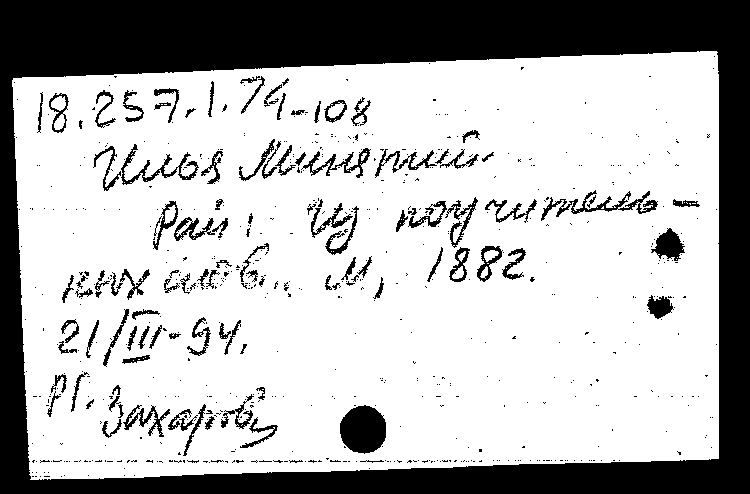 18.257.1.74-108
Илья Минятий
Рай: Из поучитель-
ных слов... М, 1882.
21/III-94.
РГ.